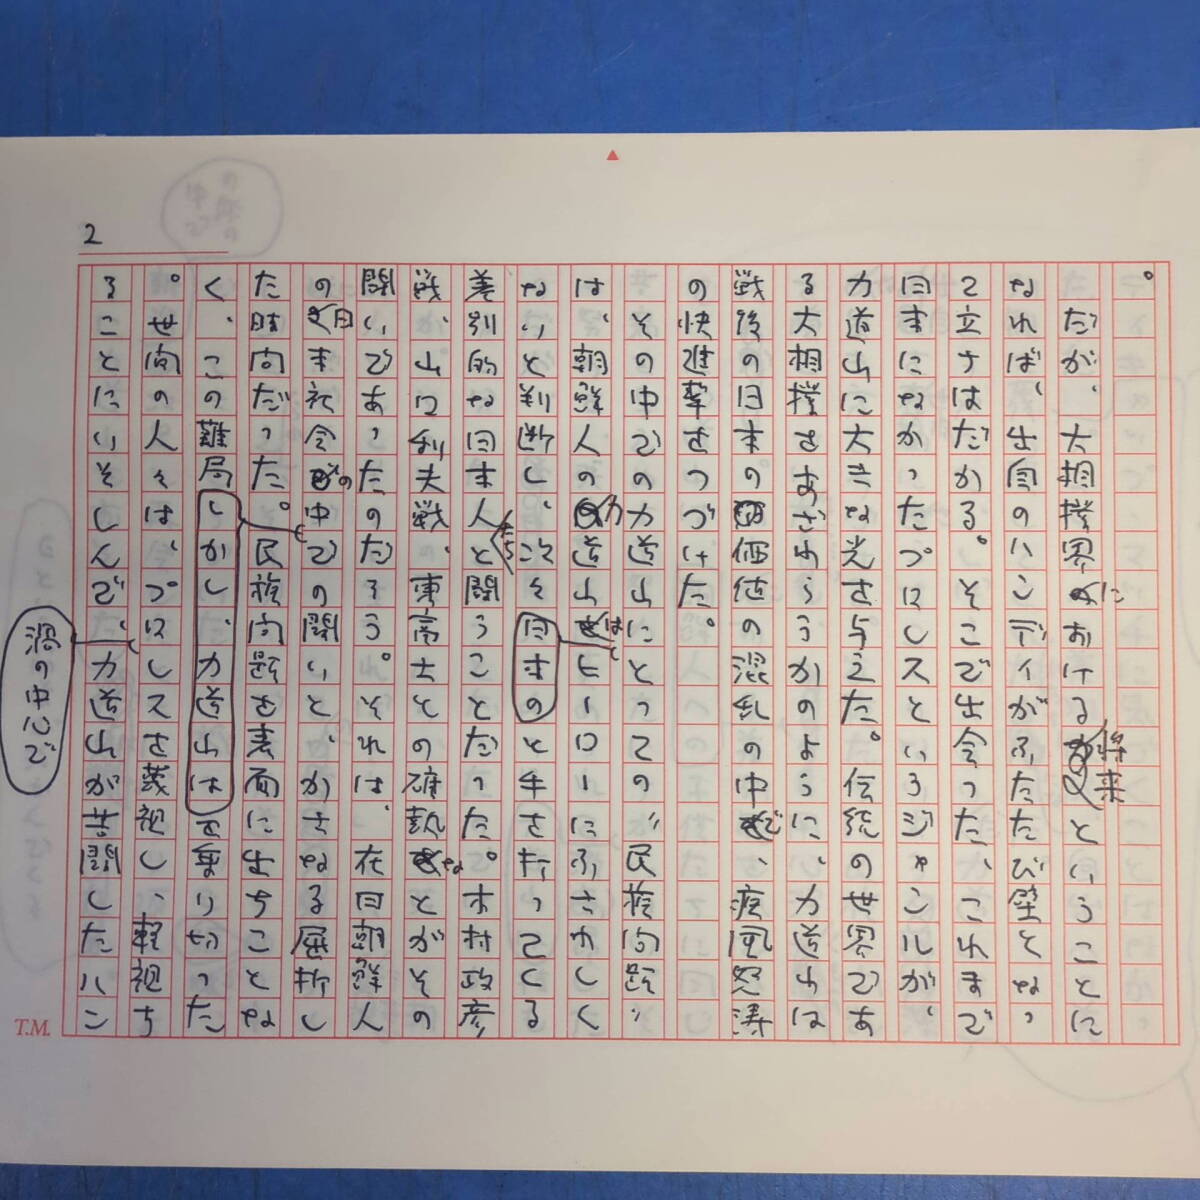 2
。
だが、大相撲界における将来ということに
なれば、出自のハンディがふたたび壁となっ
て立ちはだかる。そこで出会った、これまで
日本になかったプロレスというジャンルが、
力道山に大きな光を与えた。伝統の世界であ
る大相撲をあざわらうかのように、力道山は
戦後の日本の価値の混乱の中で、疾風怒涛
の快進撃をつづけた。
その中での力道山にとっての〝民族問題〟
は、朝鮮人の力道山はヒーローにふさわしく
ないと判断し、次々日本のと手を打ってくる
差別的な日本人たちと闘うことだった。木村政彦
戦、山口利夫戦、東富士との確執などがその
闘いであったのだろう。それは、在日朝鮮人
の日本社会の中での闘いと、かさなる屈折し
た時間だった。民族問題を表面に出すことな
く、この難局しかし、力道山はを乗り切った
。世間の人々は、プロレスを蔑視し、軽視す
ることにいそしんで、力道山が苦闘したハン
渦の中心で
T.M.